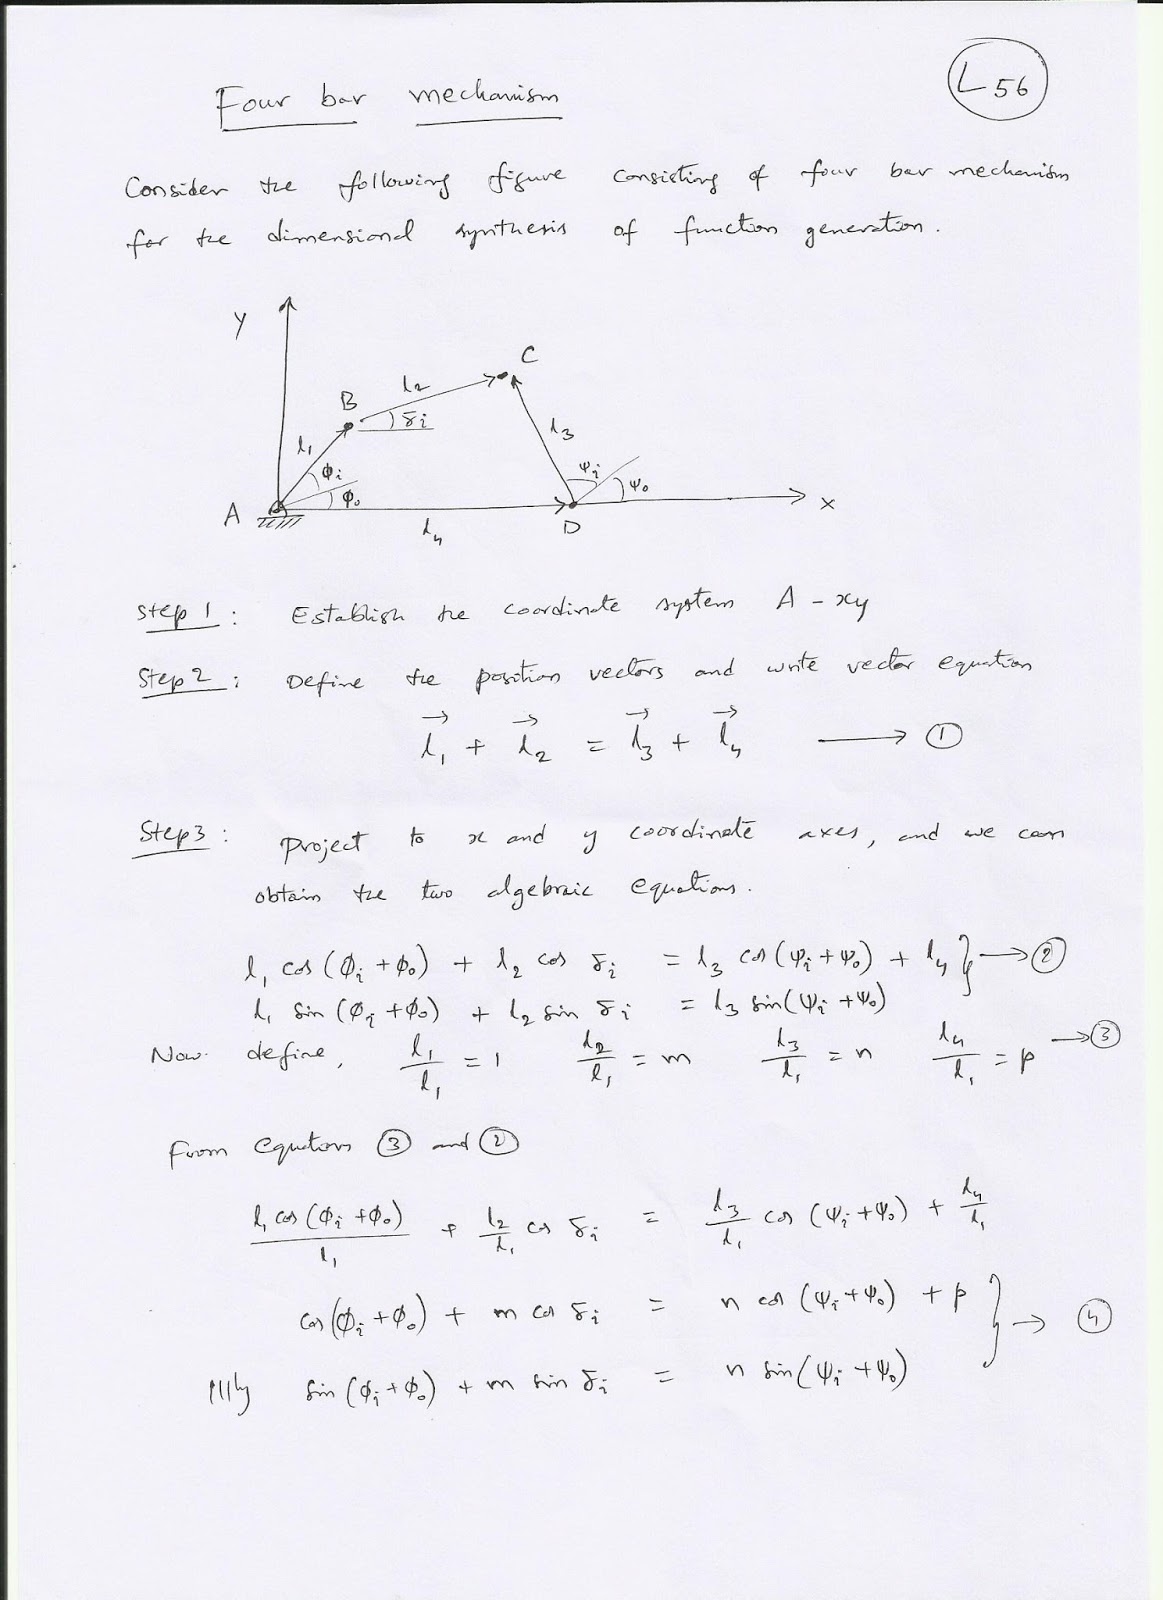 L56
Four bar mechanism
Consider the following figure consisting of four bar mechanism
for the dimensional synthesis of function generation.
y
C
l2
B
δi
l3
l1
φi
ψi
A
φ0
ψ0
x
l4
D
Step 1: Establish the coordinate system A - xy
Step 2: Define the position vectors and write vector equation
l⃗1 + l⃗2 = l⃗3 + l⃗4 → ①
Step 3: Project to x and y coordinate axes, and we can
obtain the two algebraic equations.
l1 cos (φi + φ0) + l2 cos δi = l3 cos (ψi + ψ0) + l4 } → ②
l1 sin (φi + φ0) + l2 sin δi = l3 sin (ψi + ψ0)
Now define, l1/l1 = 1 l2/l1 = m l3/l1 = n l4/l1 = p → ③
From equations ③ and ②
l1 cos (φi + φ0)/l1 + l2/l1 cos δi = l3/l1 cos (ψi + ψ0) + l4/l1
cos (φi + φ0) + m cos δi = n cos (ψi + ψ0) + p } → ④
|||ly sin (φi + φ0) + m sin δi = n sin (ψi + ψ0)